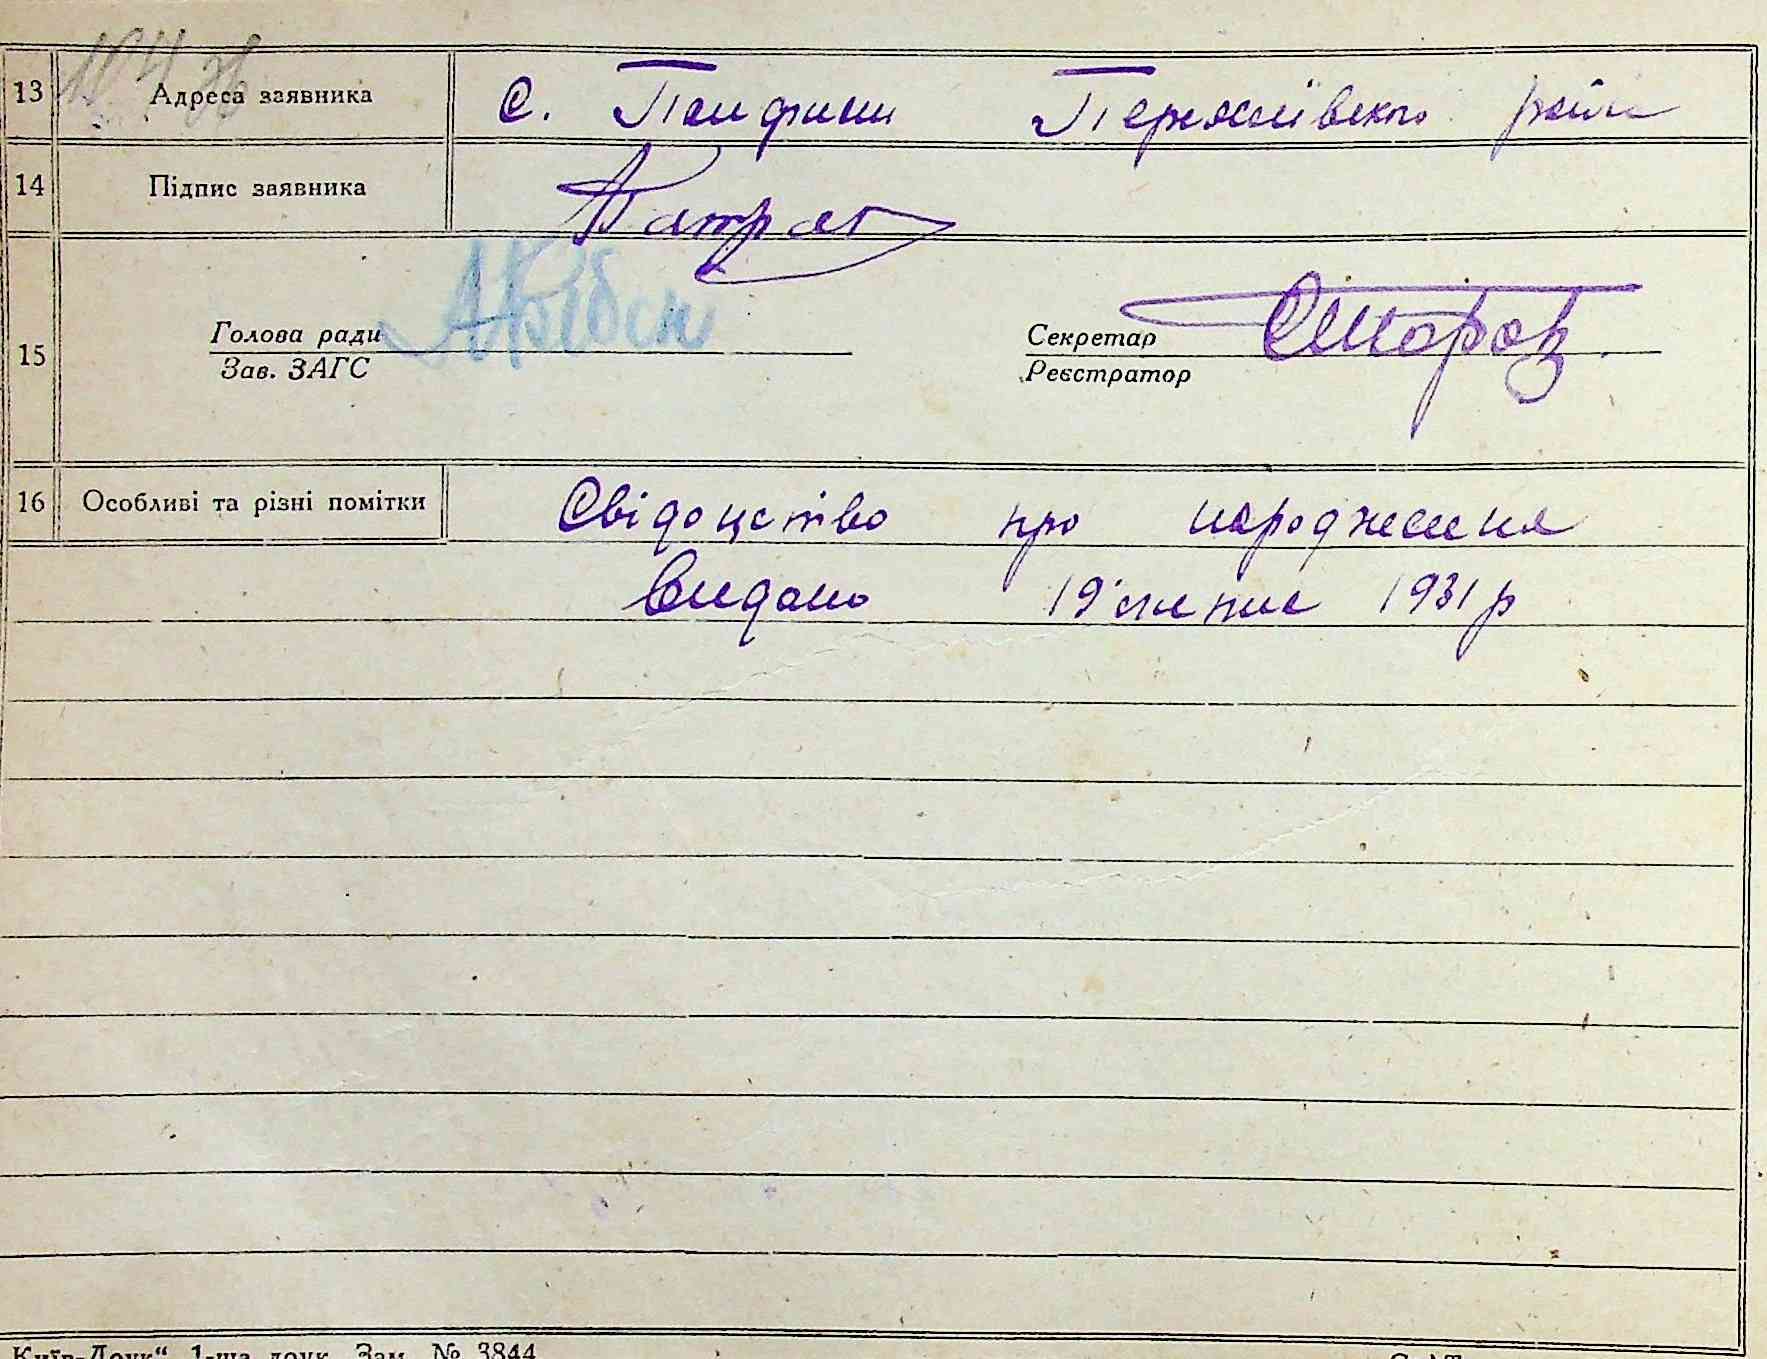 13 Адреса заявника с. Панфили Переяслівського р-ну
14 Підпис заявника
15 Голова ради Секретар
Зав. ЗАГС Реєстратор
16 Особливі та різні помітки Свідоцтво про народження
Видано 19 липня 1931 р
Київ-Друк“ 1-ша друк. Зам. № 3844